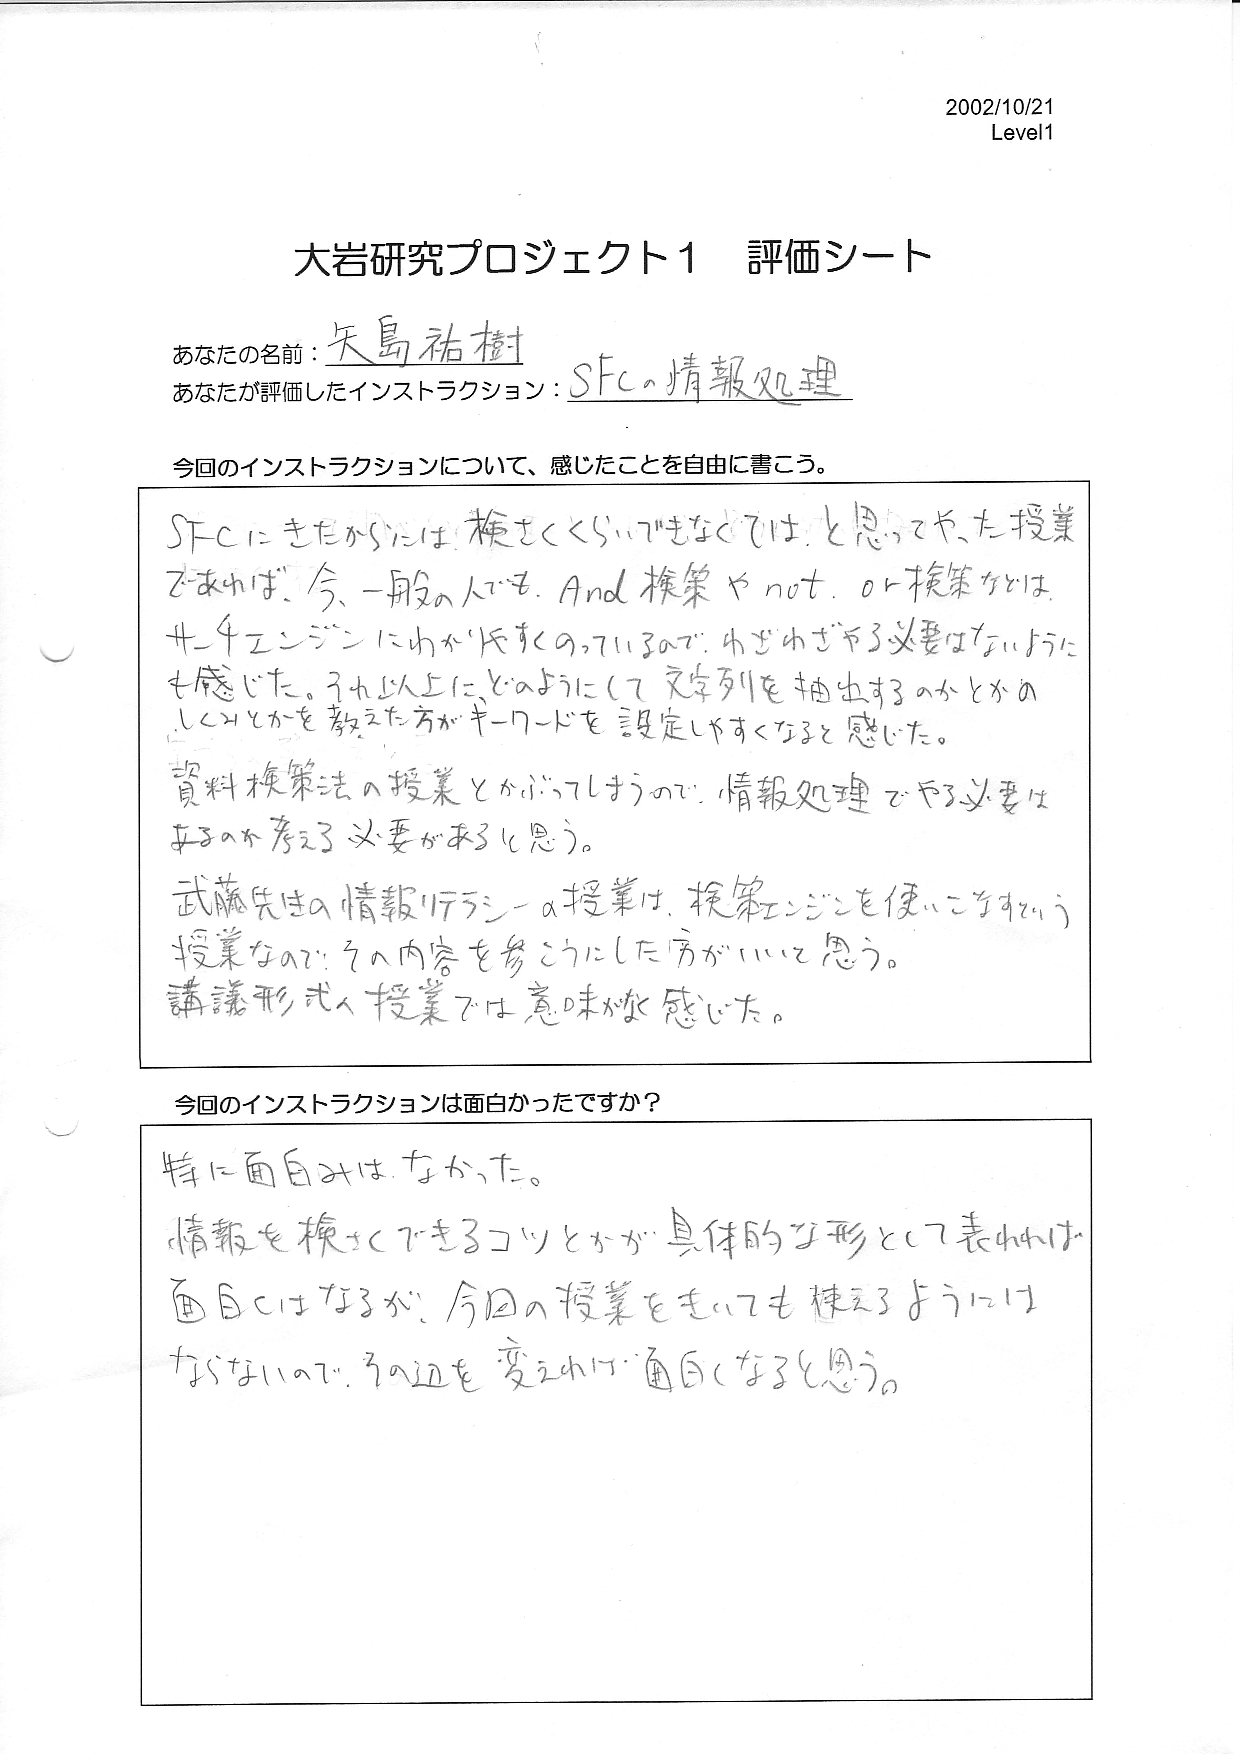 2002/10/21
Level1
大岩研究プロジェクト1　評価シート
あなたの名前：矢島祐樹
あなたが評価したインストラクション：SFCの情報処理
今回のインストラクションについて、感じたことを自由に書こう。
SFCにきたからには、検さくくらいできなくては、と思ってやった授業
であれば、今、一般の人でも、And 検策や not、or検策などは、
サーチエンジンにわかりやすくのっているので、わざわざやる必要はないように
も感じた。それ以上に、どのようにして文字列を抽出するのかとかの
しくみとかを教えた方がキーワードを設定しやすくなると感じた。
資料検策法の授業とかぶってしまうので、情報処理でやる必要は
あるのか考える必要があると思う。
武藤先生の情報リテラシーの授業は、検策エンジンを使いこなすという
授業なので、その内容を参こうにした方がいいと思う。
講議形式の授業では意味がなく感じた。
今回のインストラクションは面白かったですか？
特に面白みは、なかった。
情報を検さくできるコツとかが具体的な形として表われれば
面白くはなるが、今回の授業をきいても使えるようには
ならないので、その辺を変えれば面白くなると思う。